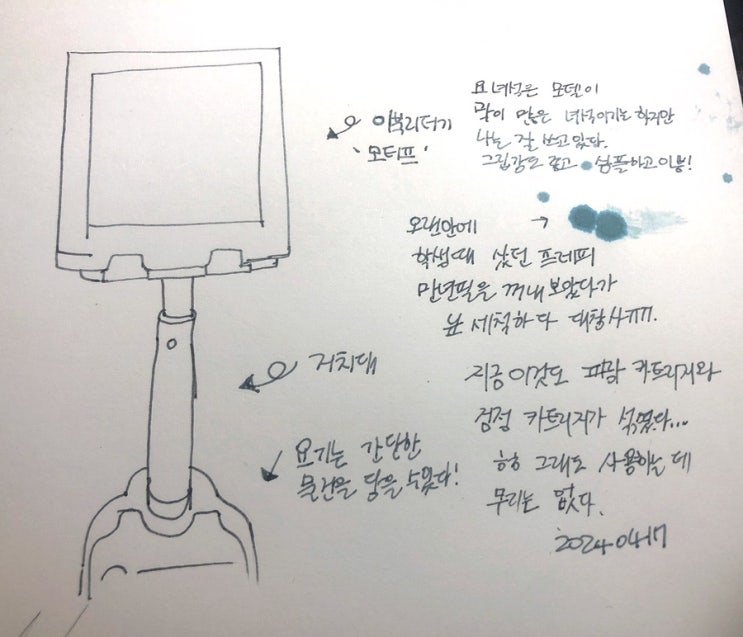 이북리더기
'모티프'
요 녀석은 모델이
말이 많은 녀석이기는 하지만
나는 잘 쓰고 있다.
그립감도 좋고 심플하고 이뿜!
오랜만에 →
학생때 샀던 프레피
만년필을 꺼내보았다가
닙 세척하다 대참사ㅠㅠ.
거치대
지금 이것도 파랑 카트리지와
검정 카트리지가 섞였다...
흐흐 그래도 사용하는 데
무리는 없다.
2024 04 17
요기는 간단한
물건을 담을 수 있다!